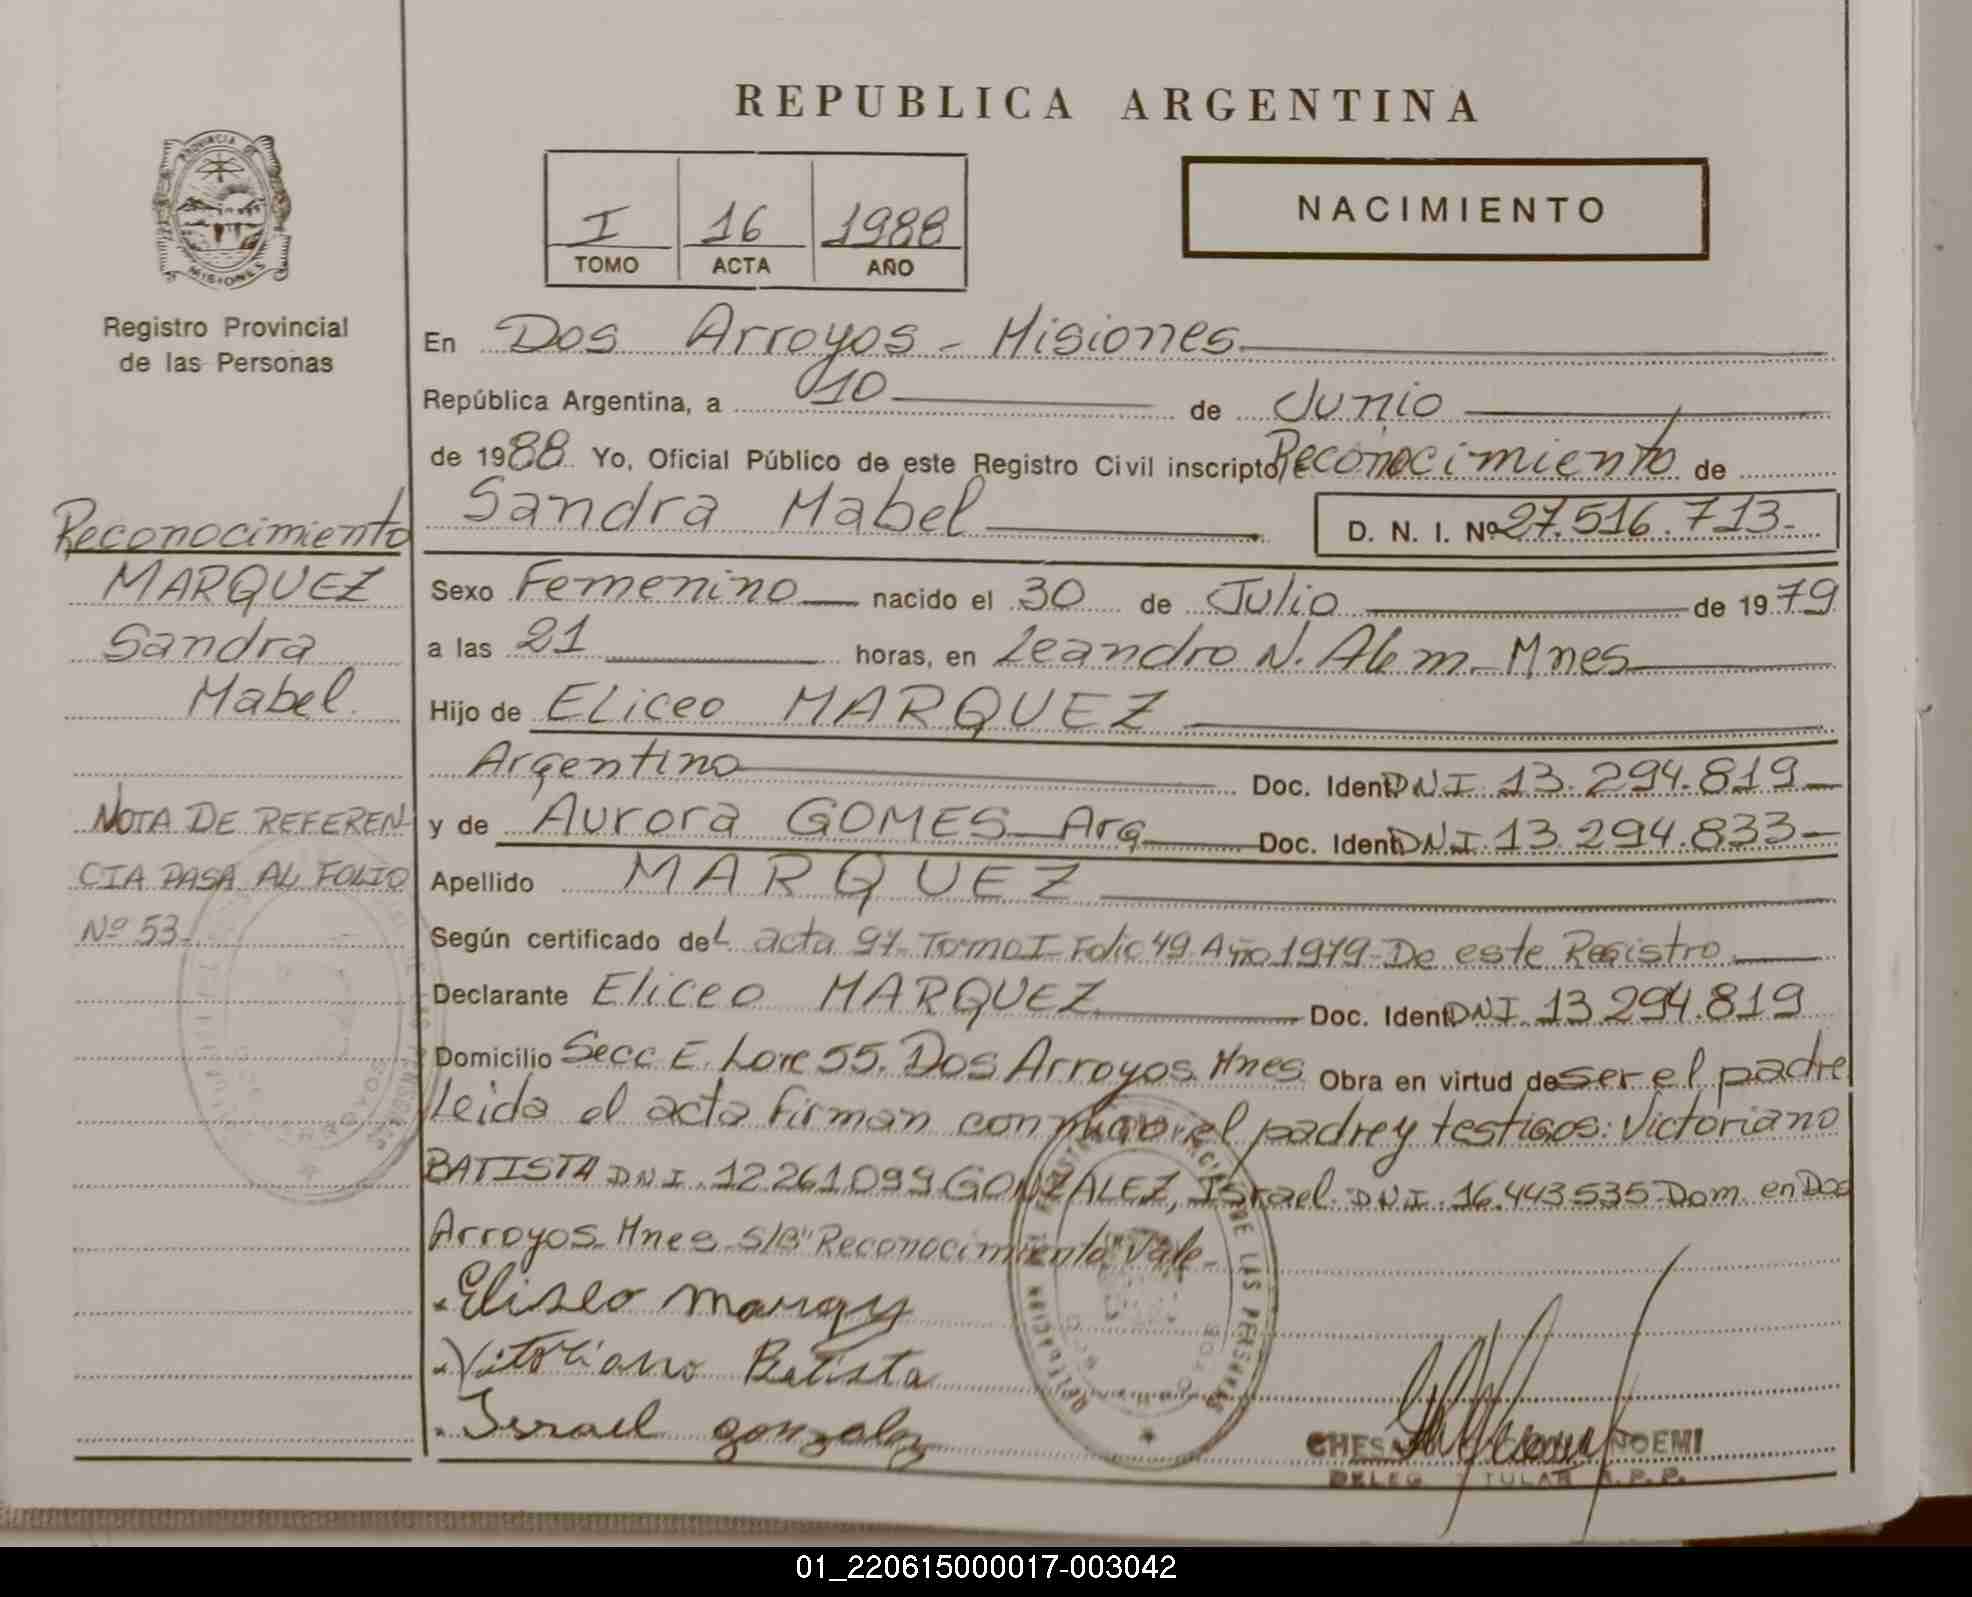 REPUBLICA ARGENTINA
PROVINCIA DE
MISIONES
Registro Provincial
de las Personas
I 16 1988
TOMO ACTA AÑO
NACIMIENTO
En Dos Arroyos - Misiones
República Argentina, a 10 de Junio
de 1988 Yo, Oficial Público de este Registro Civil inscripto Reconocimiento de
Sandra Mabel D. N. I. Nº 27.516.713.-
Sexo Femenino nacido el 30 de Julio de 1979
a las 21 horas, en Leandro N. Alem - Mnes
Hijo de Eliceo MARQUEZ
Argentino Doc. Ident. DNI 13.294.819
y de Aurora GOMES Arg Doc. Ident. DNI 13.294.833
Apellido MARQUEZ
Según certificado del acta 97- Tomo I- Folio 49 Año 1979- De este Registro
Declarante Eliceo MARQUEZ Doc. Ident. DNI. 13.294.819
Domicilio Secc E. Lote 55. Dos Arroyos Mnes Obra en virtud de ser el padre
Leida el acta firman conmigo el padre y testigos: Victoriano
BATISTA DNI. 12261099 GONZALEZ, Israel. DNI. 16.443535- Dom. en Dos
Arroyos- Mnes S/B "Reconocimiento" Vale-
Eliseo Marqz
Vitoriano Batista
Israel gonzalez
NOEMI
Reconocimiento
MARQUEZ
Sandra
Mabel.
NOTA DE REFEREN
CIA PASA AL FOLIO
Nº 53.
01_220615000017-003042